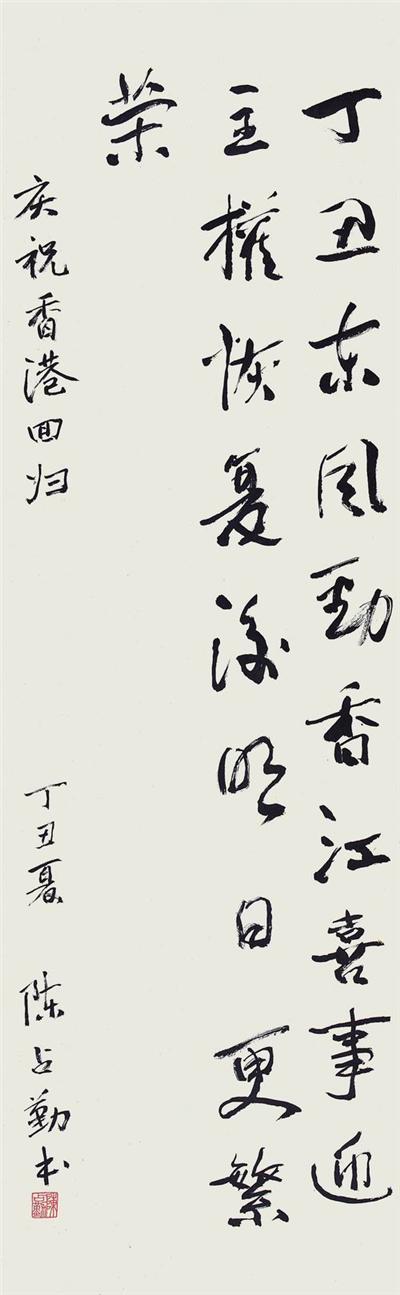 丁丑东风劲香江喜事迎
主權恢复后明日更繁
荣
庆祝香港回归
丁丑夏 陈占勤书